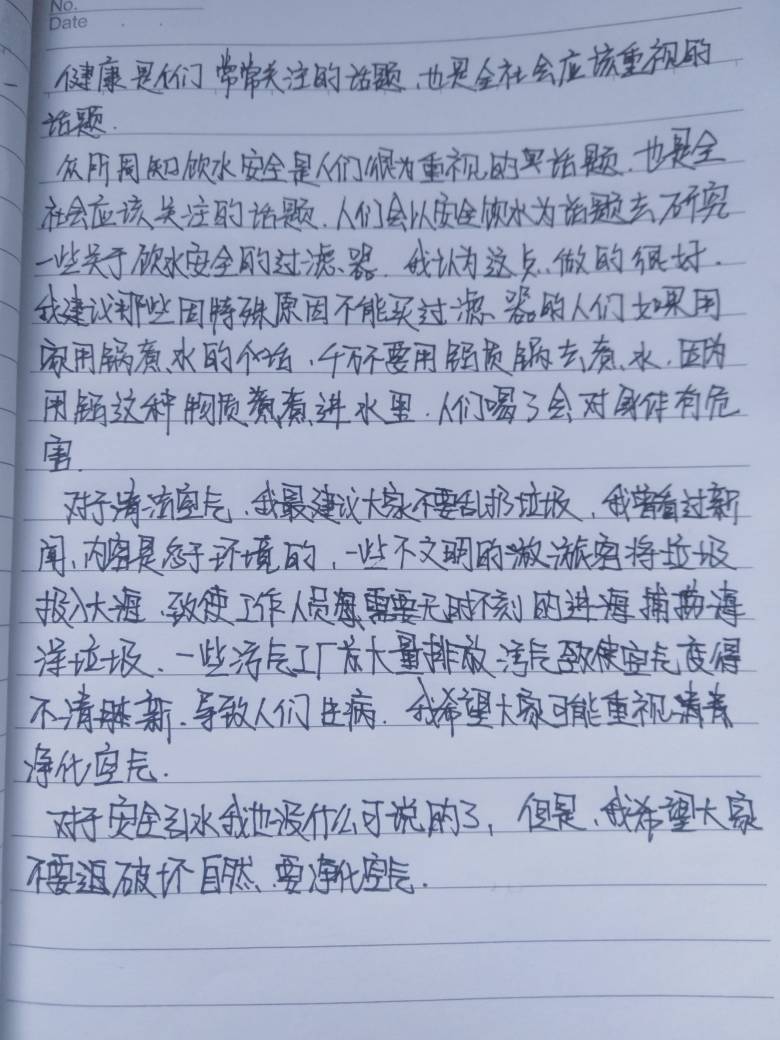 No.
Date
健康是人们常常关注的话题,也是全社会应该重视的
话题.
众所周知饮水安全是人们很为重视的话题.也是全
社会应该关注的话题.人们会以安全饮水为话题去研究
一些关于饮水安全的过滤器.我认为这点做的很好.
我建议那些因特殊原因不能买过滤器的人们如果用
家用锅煮水的话,千万不要用铝质锅去煮水.因为
用铝这种物质煮进水里.人们喝了会对身体有危
害.
对于清洁空气,我最建议大家不要乱扔垃圾,我曾看过新
闻,内容是忽于环境的,一些不文明的游客将垃圾
投入大海,致使工作人员需要无时不刻的进海捕捞海
洋垃圾.一些污气工厂大量排放污气致使空气变得
不清新.导致人们生病.我希望大家可能重视
净化空气.
对于安全引水我也没什么可说的了,但是,我希望大家
不要破坏自然、要净化空气.